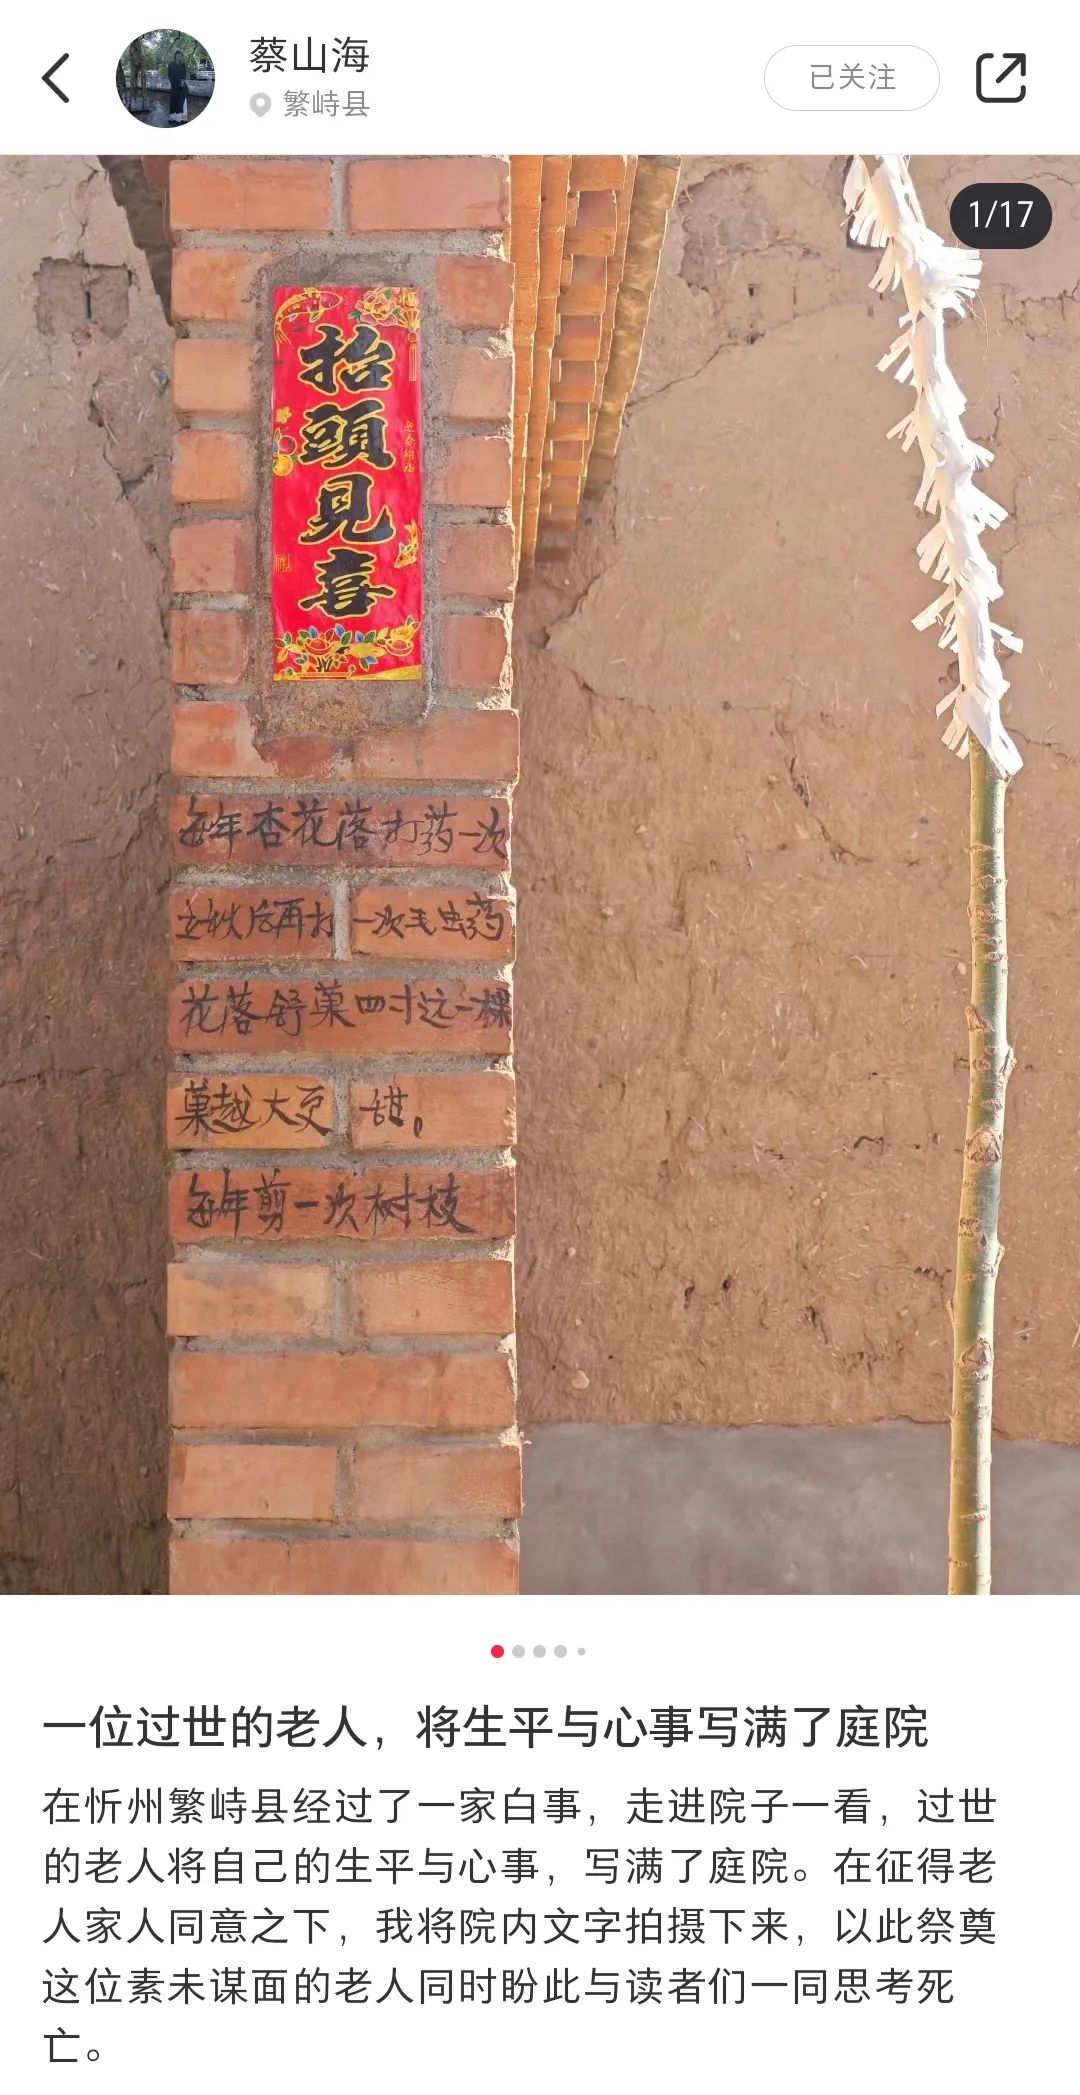 蔡山海
繁峙县
已关注
1/17
抬頭見喜
每年杏花落打药一次
立秋后再打一次毛虫药
花落舒菓四寸远一棵
菓越大更甜。
每年剪一次树枝
一位过世的老人，将生平与心事写满了庭院
在忻州繁峙县经过了一家白事，走进院子一看，过世
的老人将自己的生平与心事，写满了庭院。在征得老
人家人同意之下，我将院内文字拍摄下来，以此祭奠
这位素未谋面的老人同时盼此与读者们一同思考死
亡。